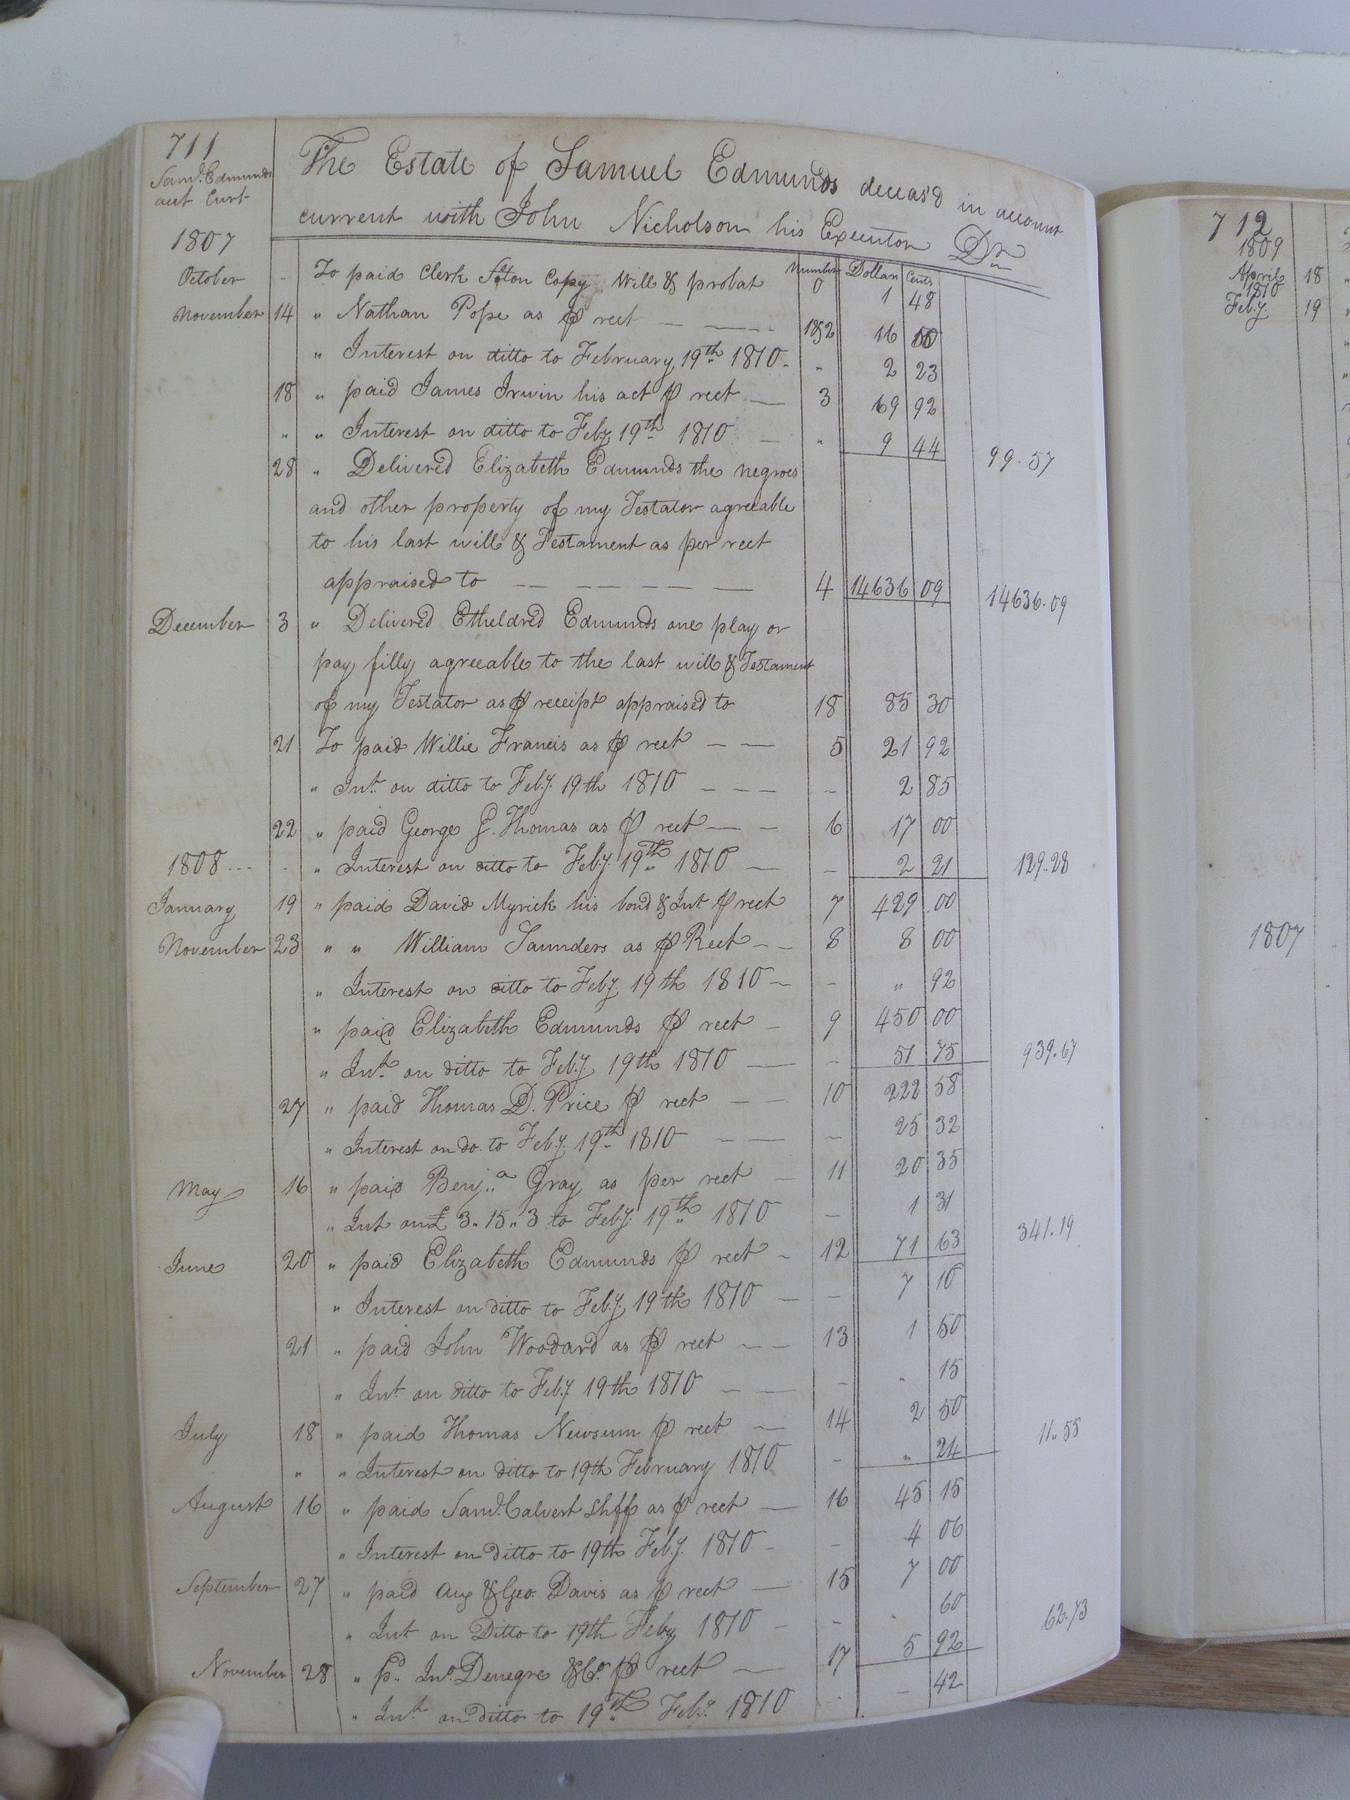 711
Saml. Edmunds
acct Curt.
The Estate of Samuel Edmunds deceas'd in account
current with John Nicholson his Executor Dr.
1807
Number Dollars Cents
October - To paid Clerk Copy Will & probat 0 1 48
November 14 " Nathan Pope as ⅌ rect — 1&2 16 50
" Interest on ditto to February 19th 1810 - " 2 23
18 " paid James Irwin his act ⅌ rect — 3 69 92
" " Interest on ditto to Feby. 19th 1810 — " 9 44 99.57
28 " Delivered Elizabeth Edmunds the negroes
and other property of my Testator agreeable
to his last will & Testament as per rect
appraised to — — — — — 4 14636 09 14636.09
December 3 " Delivered Etheldred Edmunds one play or
pay filly agreeable to the last will & Testament
of my Testator as ⅌ receipt appraised to 18 85 30
21 To paid Willie Francis as ⅌ rect — — 5 21 92
" Int. on ditto to Feby. 19th 1810 — — — - 2 85
22 " paid George G. Thomas as ⅌ rect — — 6 17 00
1808 ... - " Interest on ditto to Feby. 19th 1810 — - 2 21 129.28
January 19 " paid David Myrick his bond & Int ⅌ rect 7 429 00
November 23 " " William Saunders as ⅌ Rect — - 8 8 00
" Interest on ditto to Feby. 19th 1810 — - " 92
" paid Elizabeth Edmunds ⅌ rect — 9 450 00
" Int. on ditto to Feby. 19th 1810 — - 51 75 939.67
27 " paid Thomas D. Price ⅌ rect — — 10 222 58
" Interest on do. to Feby. 19th 1810 — — - 25 32
May 16 " paid Benja. Gray as per rect — 11 20 35
" Int on £ 3.15.3 to Feby. 19th 1810 — 1 31
June 20 " paid Elizabeth Edmunds ⅌ rect - 12 71 63 341.19
" Interest on ditto to Feby. 19th 1810 — - 7 16
21 " paid John Woodard as ⅌ rect — - 13 1 50
" Int. on ditto to Feby. 19th 1810 — — - " 15
July 18 " paid Thomas Newsum ⅌ rect — 14 2 50
" " Interest on ditto to 19th February 1810 - " 24 11.55
August 16 " paid Saml. Calvert Shff as ⅌ rect — 16 45 15
" Interest on ditto to 19th Feby. 1810 - - 4 06
September 27 " paid Aug & Geo. Davis as ⅌ rect — 15 7 00
" Int on Ditto to 19th Feby 1810 - - 60
November 28 " pd. Jno. Denegre & Co. ⅌ rect — 17 5 92 62.73
" Int. on ditto to 19th Feby. 1810 - 42
712
1809
April 18
1810
Feby. 19
1807